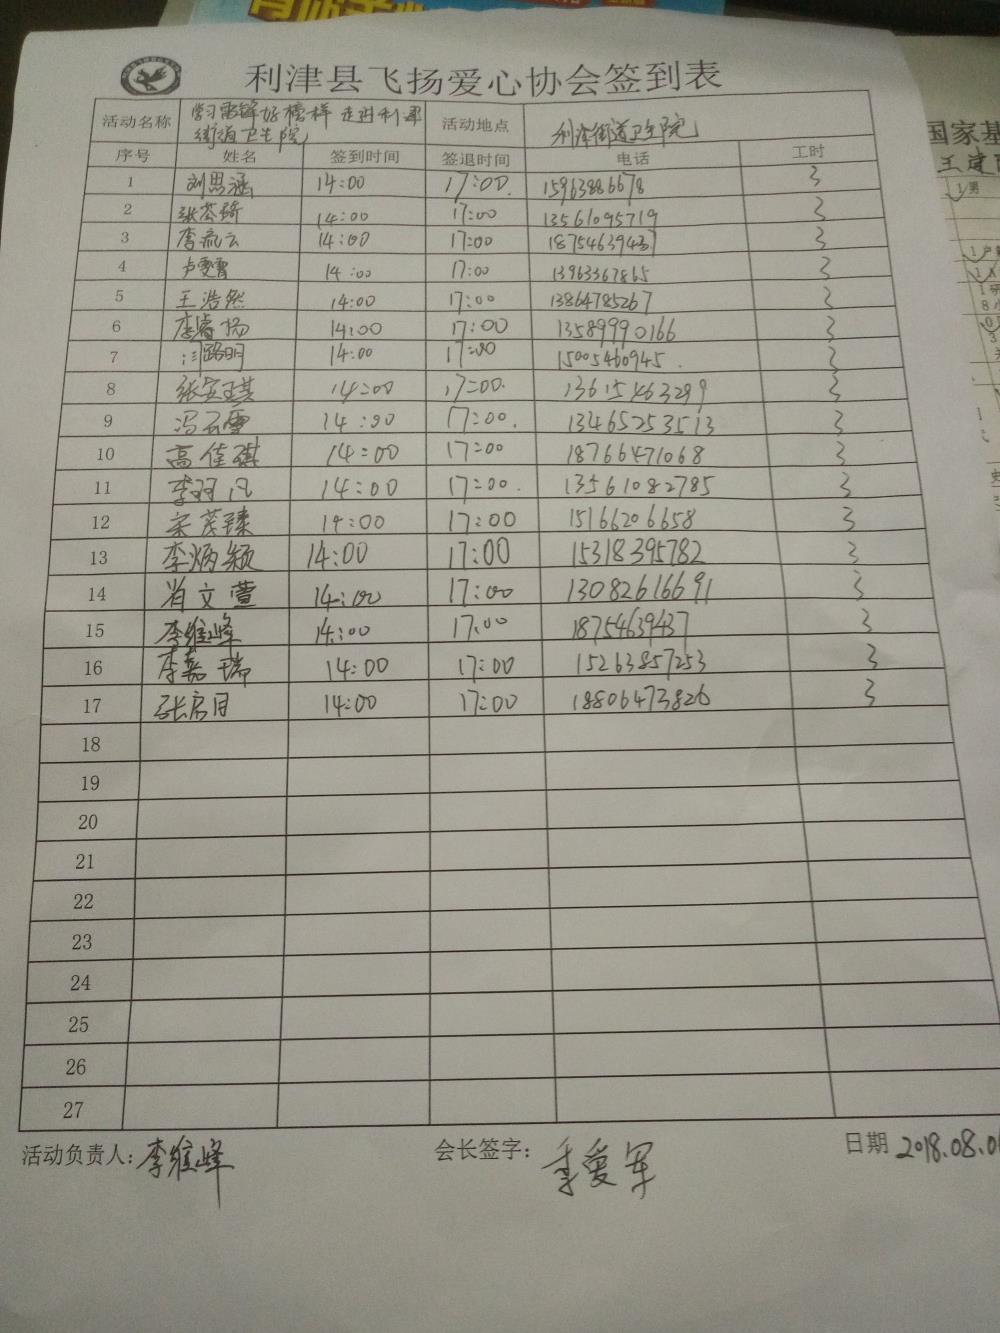 利津县飞扬爱心协会签到表
活动名称 学习雷锋好榜样 走进利津 活动地点 利津街道卫生院
街道卫生院
序号 姓名 签到时间 签退时间 电话 工时
1 刘思涵 14:00 17:00. 15963886678 3
2 张芩琦 14:00 17:00 13561095719 3
3 李流云 14:00 17:00 18754639437 3
4 卢雯 14:00 17:00 13963367865 3
5 王浩然 14:00 17:00 13864785267 3
6 李睿扬 14:00 17:00 13589990166 3
7 路明 14:00 17:00 15005460945. 3
8 张安琪 14:00 17:00. 13615463299 3
9 冯云雪 14:00 17:00. 13465253513 3
10 高佳琪 14:00 17:00 18766471068 3
11 李羽凡 14:00 17:00. 13561082785 3
12 宋茂臻 14:00 17:00 15166206658 3
13 李炳颖 14:00 17:00 15318395782 3
14 肖文萱 14:00 17:00 13082616691 3
15 李维峰 14:00 17:00 18754639437 3
16 李嘉瑞 14:00 17:00 15263857253 3
17 张启月 14:00 17:00 18806473826 3
18
19
20
21
22
23
24
25
26
27
活动负责人: 李维峰 会长签字: 李爱军 日期 2018.08.0
国家基
王建
1 男